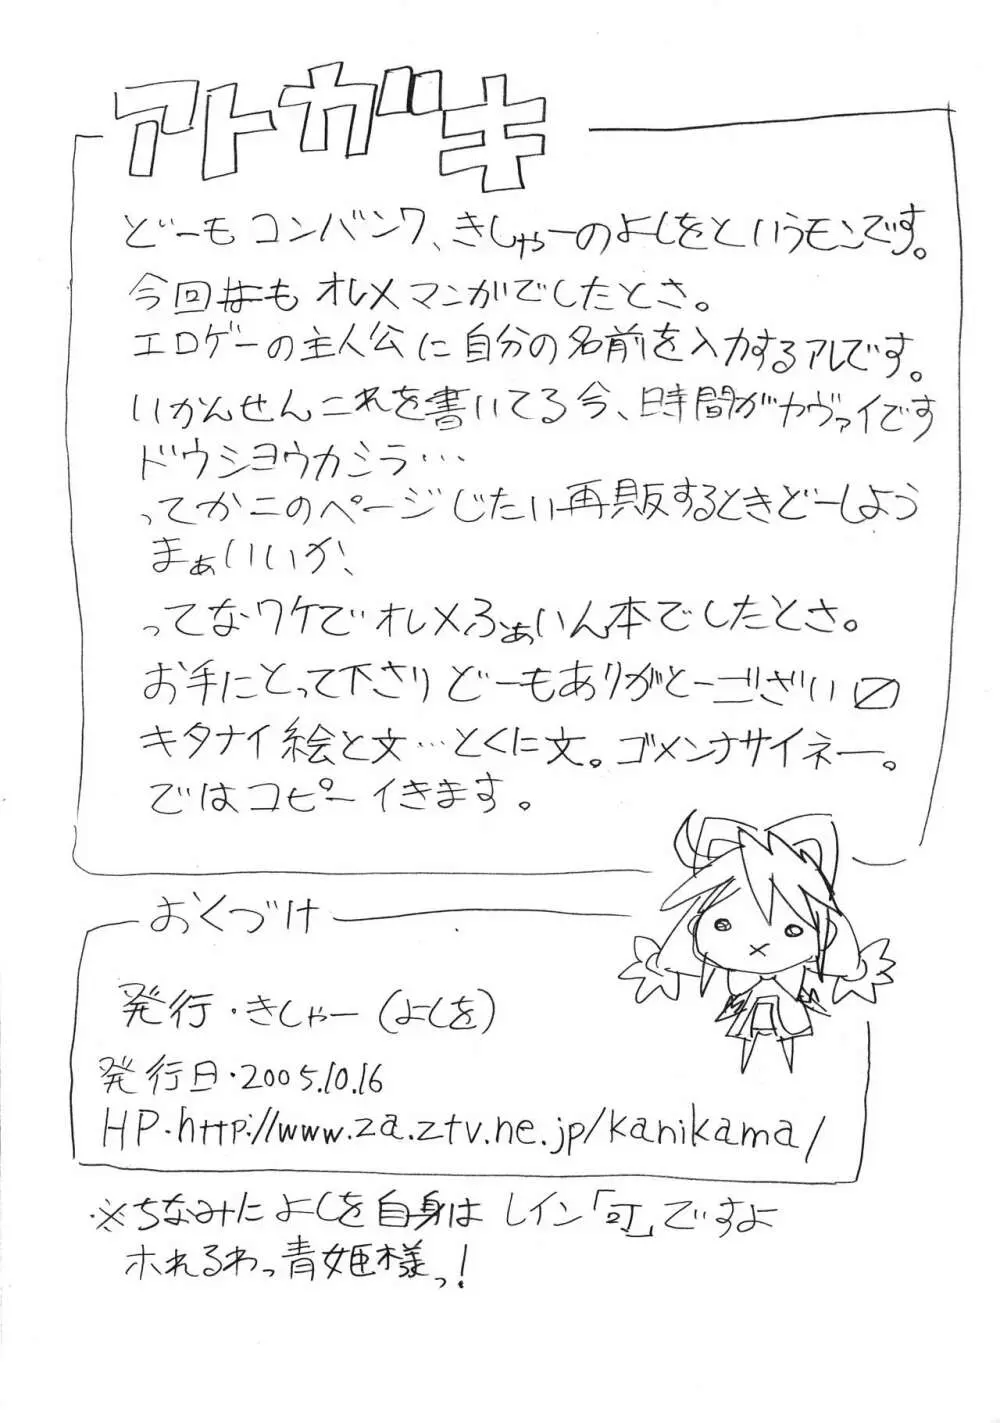 アトガキ
どーもコンバンワ、きしゃーのよしをというモンです。
今回本もオレメマンガでしたとさ。
エロゲーの主人公に自分の名前を入力するアレです。
いかんせんこれを書いてる今、時間がヤヴァイです
ドウシヨウカシラ…
ってかこのページじたい再販するときどーしよう
まぁいいか、
ってなワケでオレメふぁいん本でしたとさ。
お手にとって下さりどーもありがとーござい〼
キタナイ絵と文…とくに文。ゴメンナサイネー。
ではコピーイきます。
おくづけ
発行・きしゃー(よしを)
発行日・2005.10.16
HP・http://www.za.ztv.ne.jp/kanikama/
※ちなみによしを自身はレイン「訂」ですよ
ホれるわっ青姫様っ!